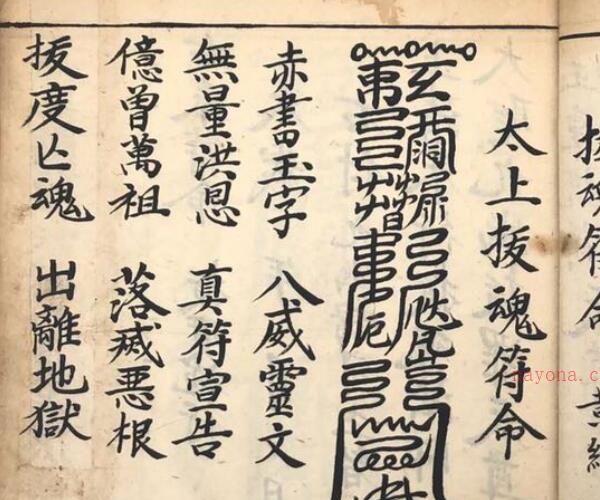 拔魂符命
太上拔魂符命
赤書玉字 八威靈文
無量洪恩 真符宣告
億曾萬祖 落滅悪根
拔度亾魂 出離地獄
nayona.c